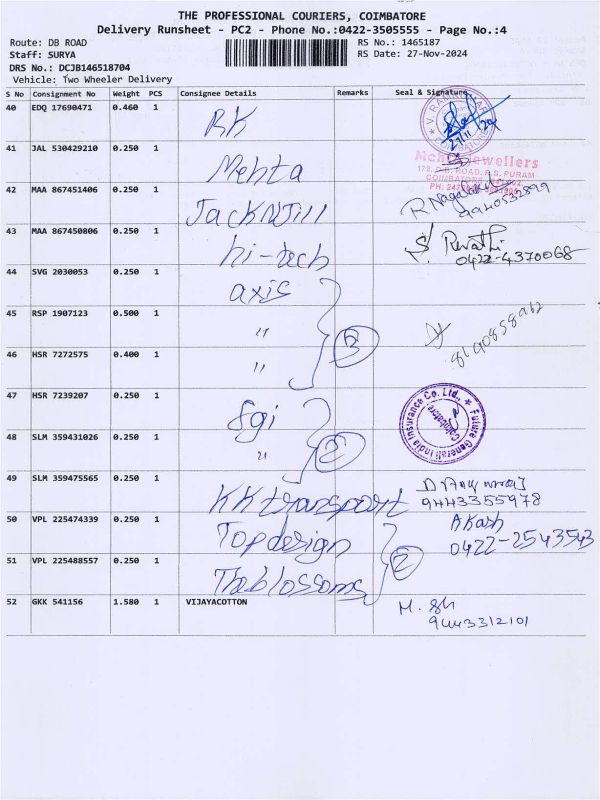 THE PROFESSIONAL COURIERS, COIMBATORE
Delivery Runsheet - PC2 - Phone No.:0422-3505555 - Page No.:4
Route: DB ROAD RS No.: 1465187
Staff: SURYA RS Date: 27-Nov-2024
DRS No.: DCJB146518704
Vehicle: Two Wheeler Delivery
S No Consignment No Weight PCS Consignee Details Remarks Seal & Signature
40 EDQ 17690471 0.460 1 RK
COIMBATORE
41 JAL 530429210 0.250 1 Mehta
Jewellers
R.S. PURAM
42 MAA 867451406 0.250 1 JackNJill
43 MAA 867450806 0.250 1 hi-tech S. Revathi
0422-4370068
44 SVG 2030053 0.250 1 axis
45 RSP 1907123 0.500 1 "
3
46 HSR 7272575 0.400 1 "
47 HSR 7239207 0.250 1 Sgi
Future Generali India Insurance Co. Ltd.,
Coimbatore
48 SLM 359431026 0.250 1 "
2
49 SLM 359475565 0.250 1 KK transport
9443355978
50 VPL 225474339 0.250 1 Top design Akash
0422-2543543
2
51 VPL 225488557 0.250 1 The blossoms
52 GKK 541156 1.580 1 VIJAYACOTTON
9443312101